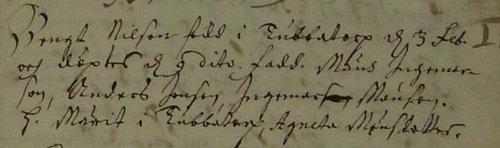 Bengt Nilson född i Tubbatorp d 3 Feb.
och döptes d 9 dito. fadd. Måns Ingemar
son, Anders Jonson, Ingemar Månson.
H. Marit i Tubbatorp, Agneta Månsdotter.